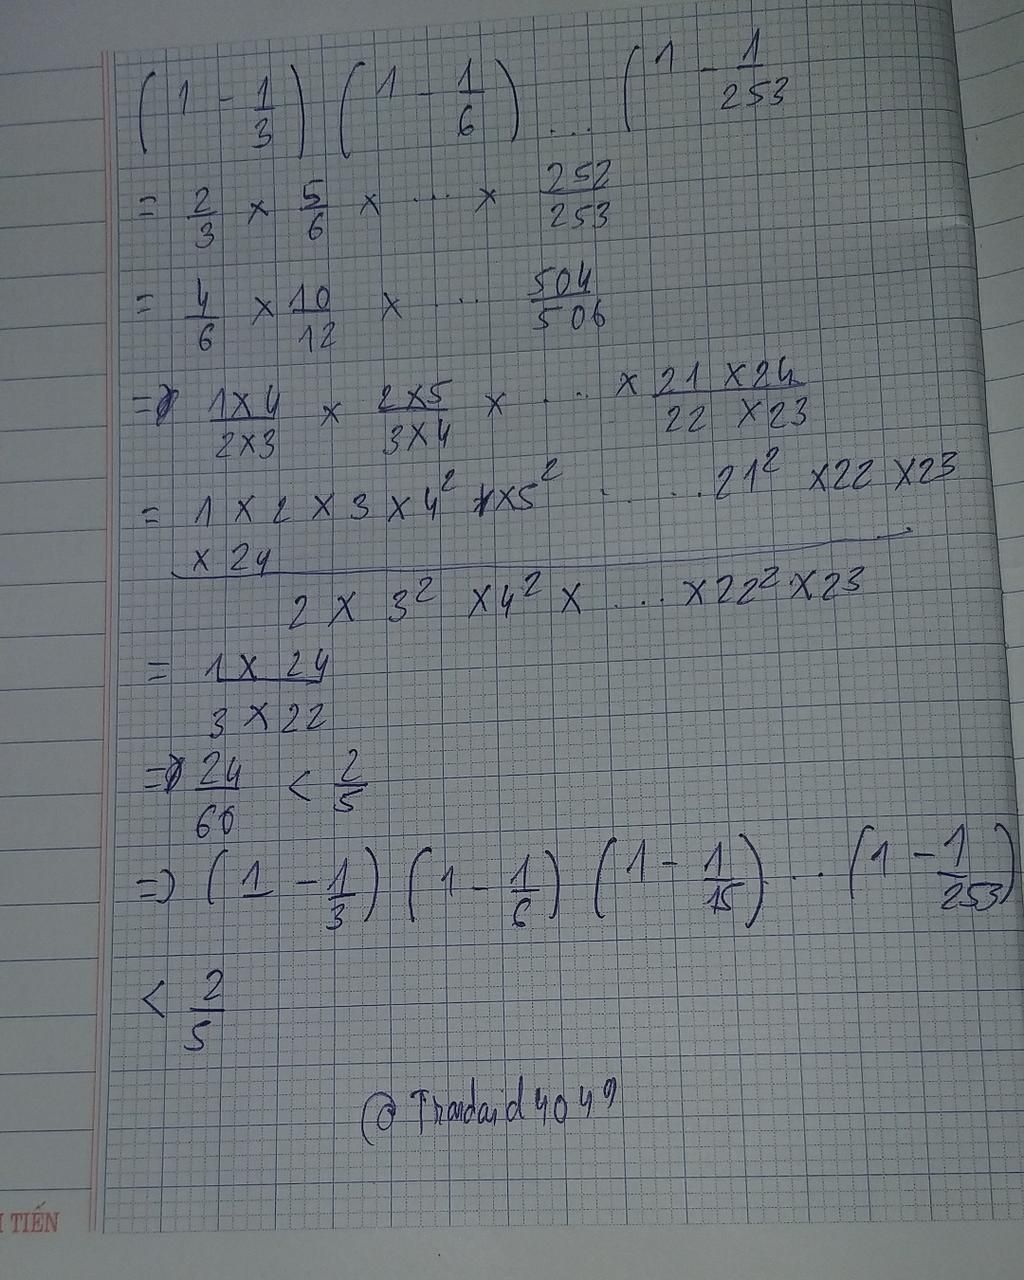 (1 - 1/3) (1 - 1/6) ... (1 - 1/253
= 2/3 × 5/6 × ... × 252/253
= 4/6 × 10/12 × ... 504/506
=> 1×4/2×3 × 2×5/3×4 × ... × 21×24/22×23
= 1 × 2 × 3 × 4² × 5² ..... 21² ×22 ×23
× 24
2 × 3² ×4² × .... ×22² ×23
= 1 × 24/3 × 22
=> 24/66 < 2/5
=> (1 - 1/3) (1 - 1/6) (1 - 1/15) ... (1 - 1/253)
< 2/5
@Trandaid4049
TIẾN